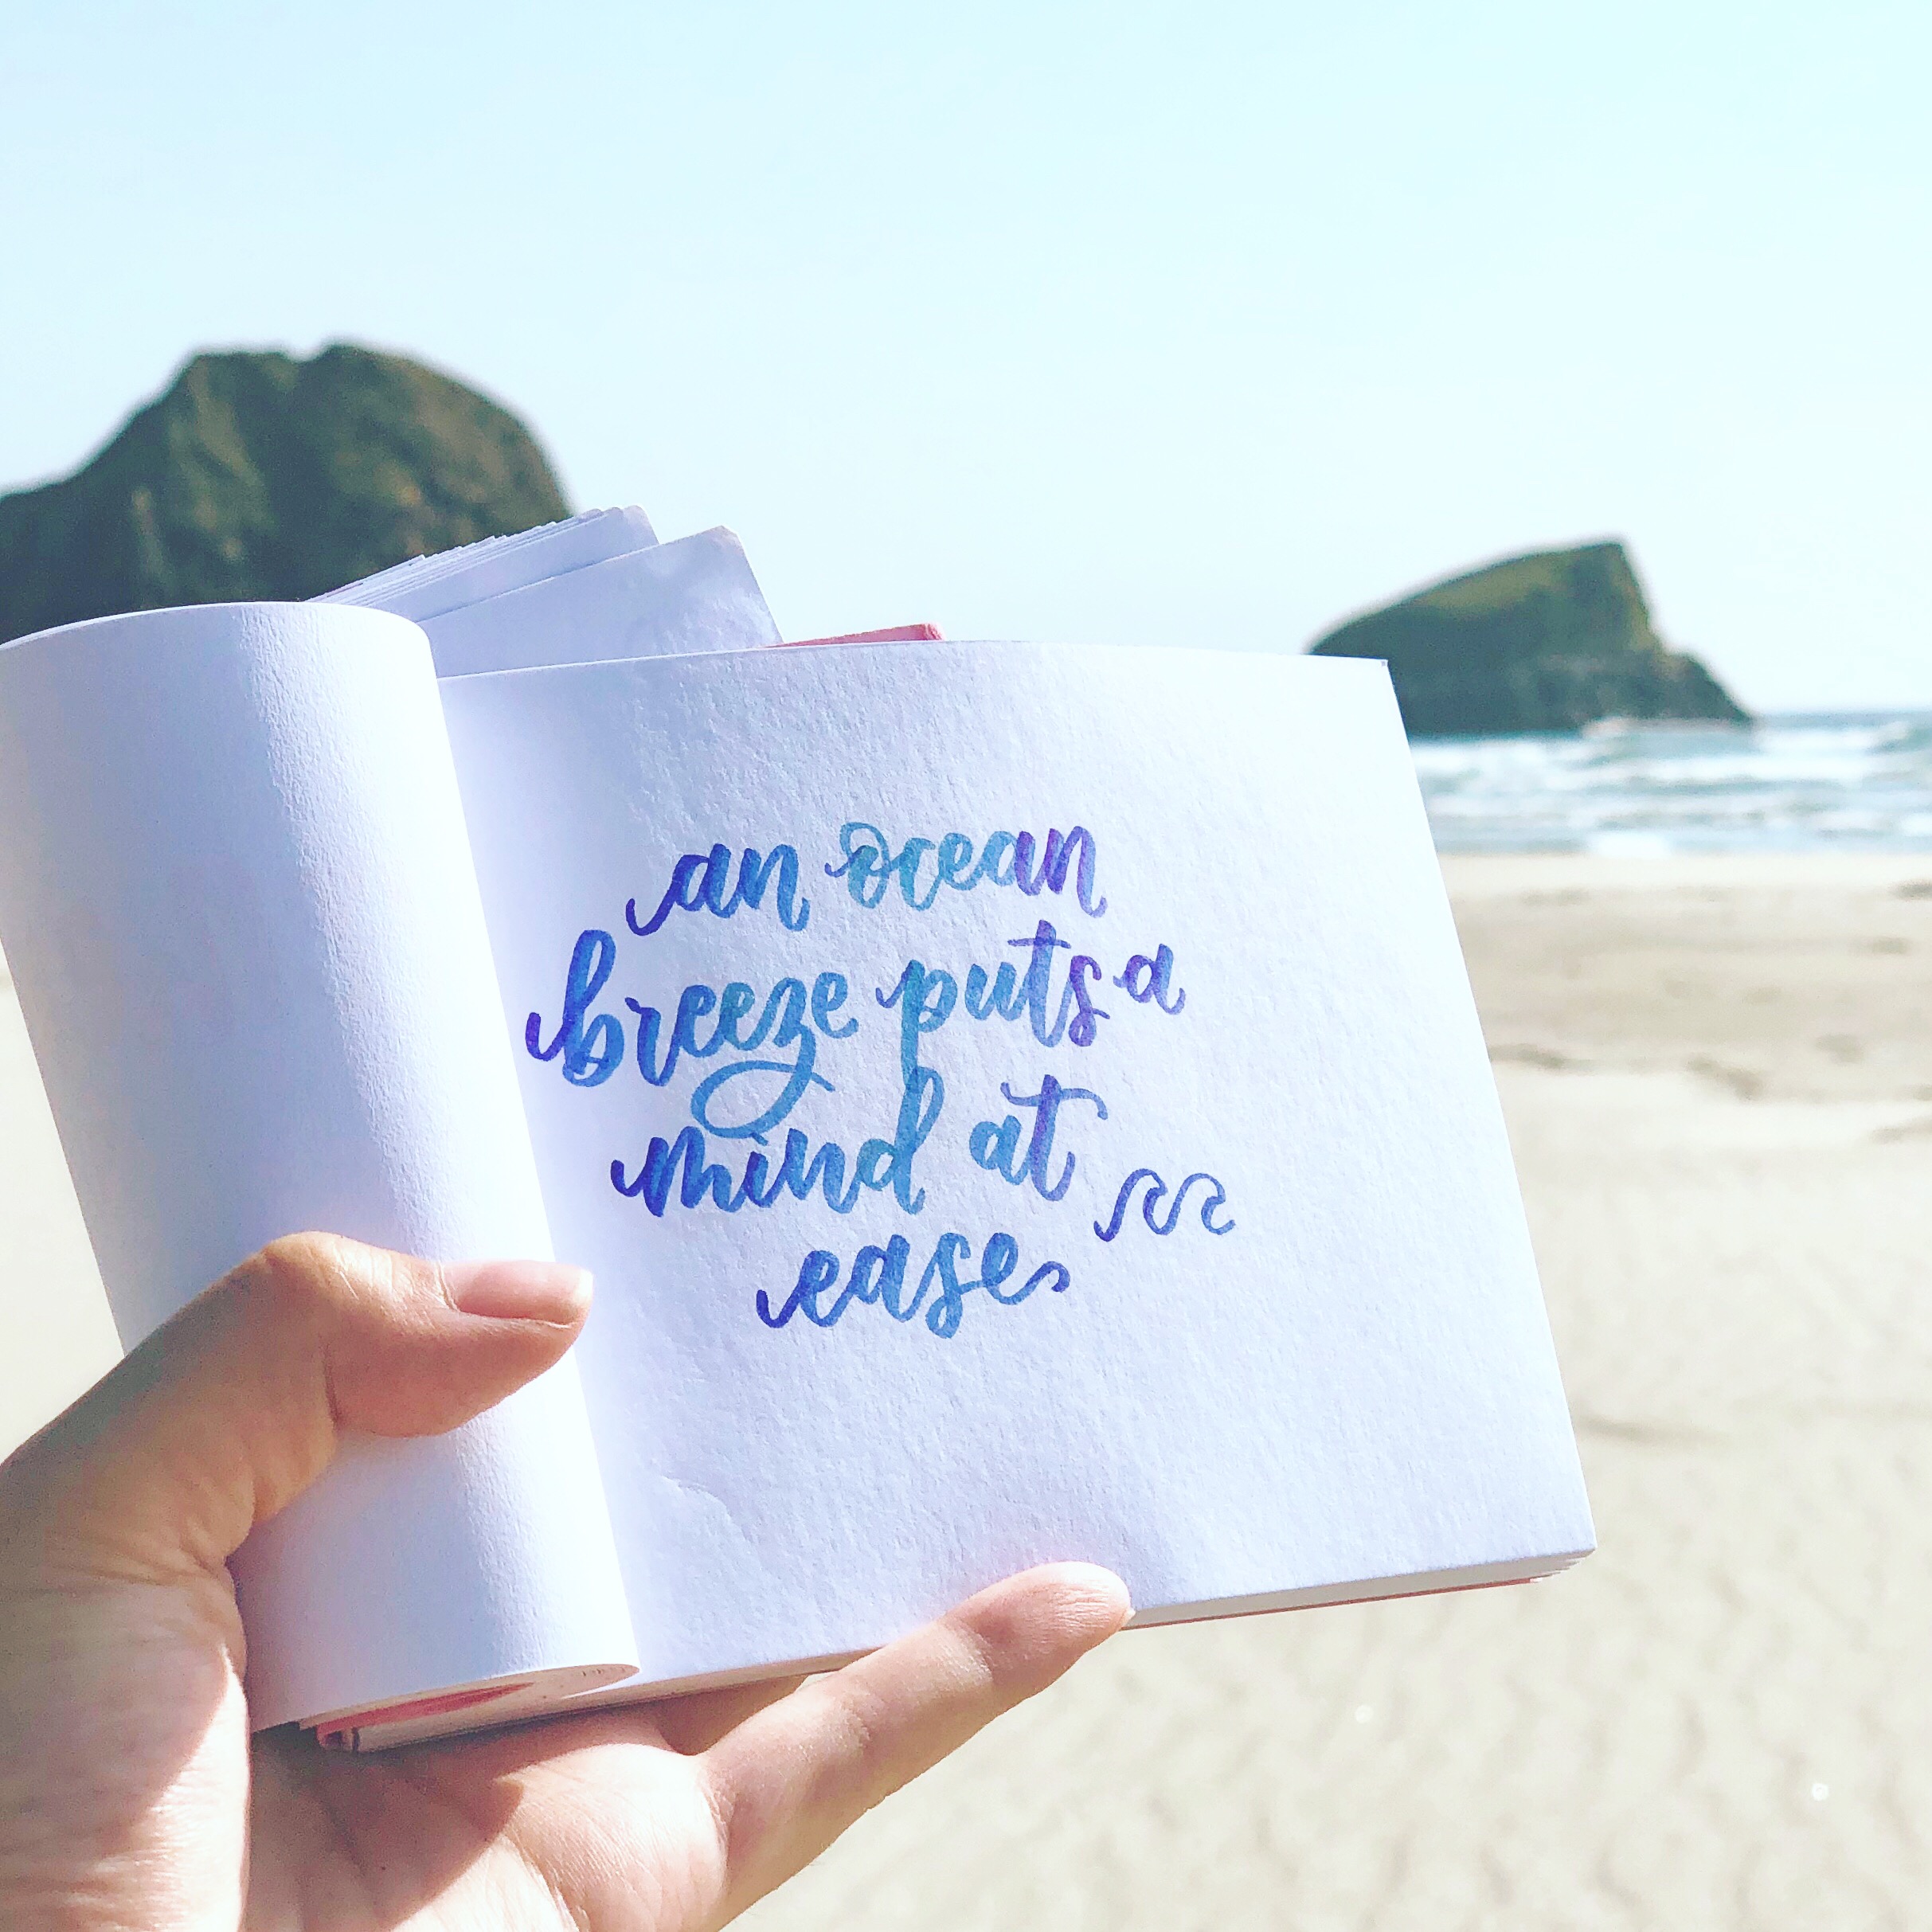 an ocean
breeze puts a
mind at
ease